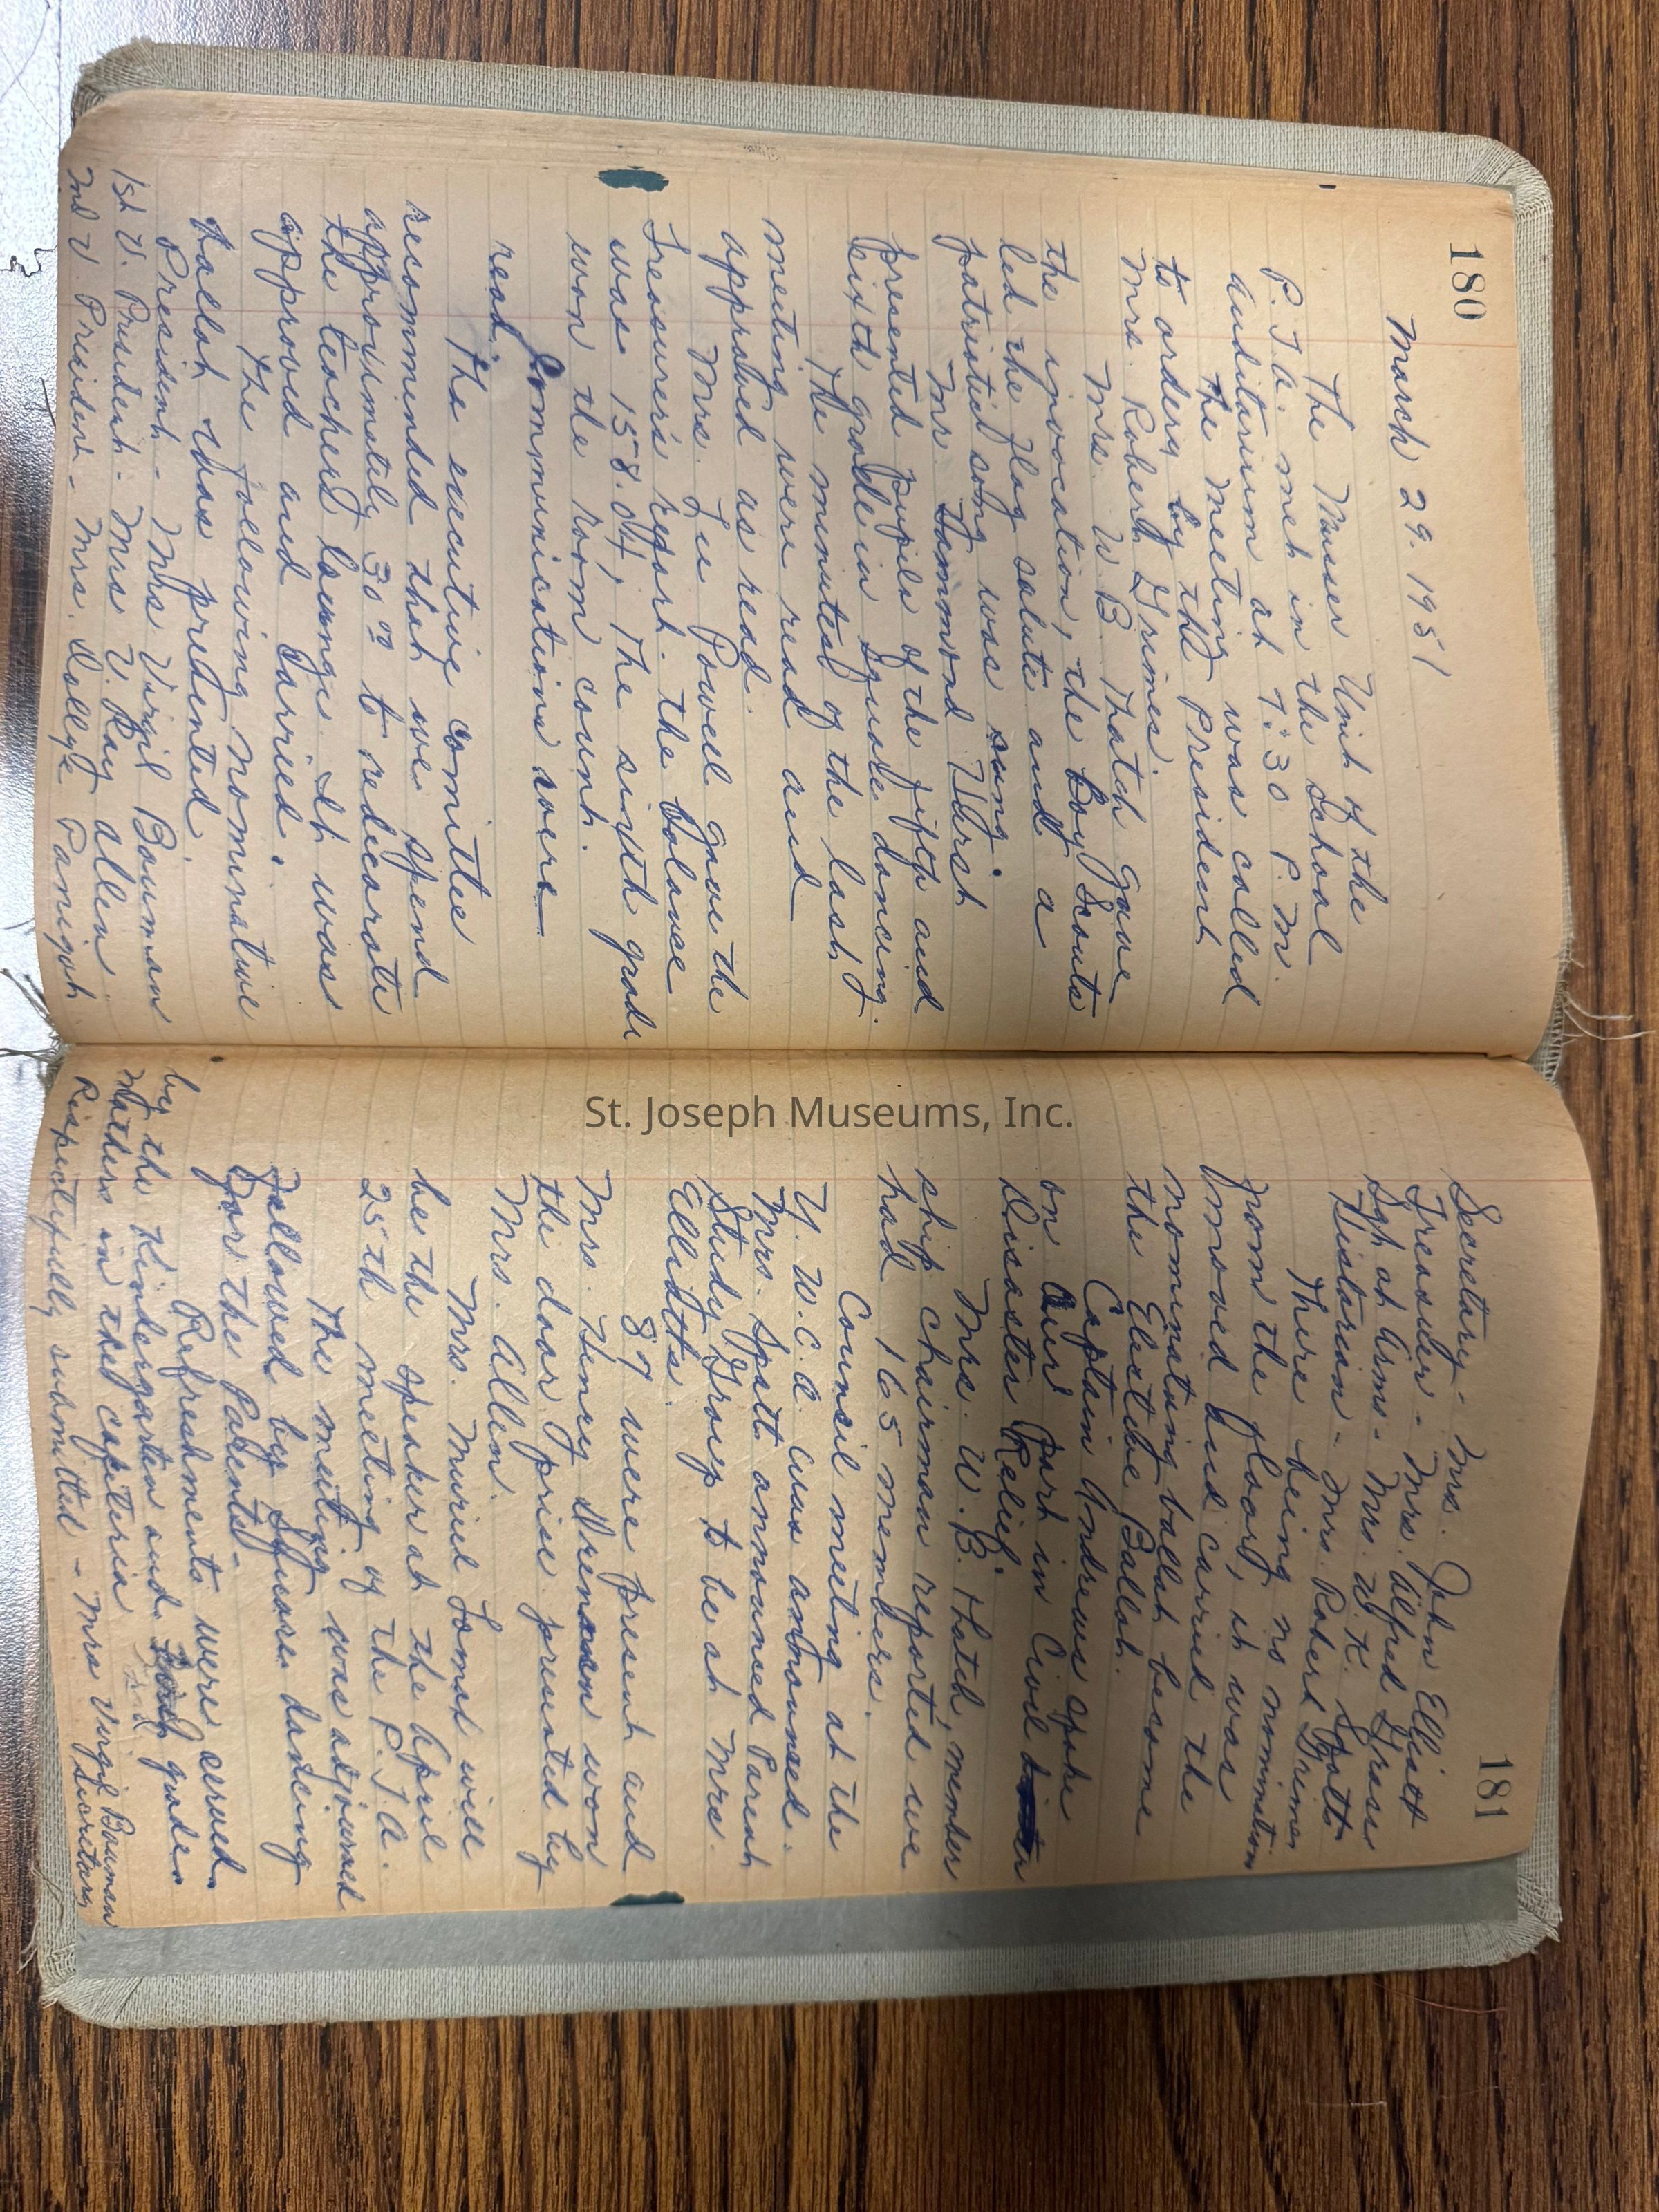 180
March 29. 1951
The Musser Unit of the
P.T.A. met in the School
auditorium at 7:30 P.M.
The meeting was called
to order by the President
Mrs. Robert Grimes.
Mrs. W. B. Thatch gave
the invocation, the Boy Scouts
led the flag salute and a
patriotic song was sung.
Mr. Hammond Hursh
presented pupils of the fifth and
sixth grade in square dancing.
The minutes of the last
meeting were read and
approved as read.
Mrs. Leu Powell gave the
Treasurer's report. The balance
was 158.04, The sixth grade
won the room count.
Communications were
read.
The executive comittee
recommended that we spend
approximately 30 00 to redecorate
the teachers lounge. It was
approved and carried.
The following nominative
ballot was presented.
President - Mrs Virgil Bauman
1st V. President - Mrs V. Ray Allen
2nd V. President - Mrs. Dollye Panigot
181
Secretary - Mrs. John Elliott
Treasurer - Mrs. Alfred Grass
Sgt at Arms - Mrs. W. K. Spatts
Historian - Mrs. Robert Grimes
There being no nomination
from the floor, it was
moved and carried the
nominating ballot become
the Elective Ballot.
Captain Andrews spoke
on our part in Civil
Disaster Relief.
Mrs. W. B. Thatch, member
ship chairman reported we
had 165 members.
Council meeting at the
Y.W.C.A. was announced.
Mrs. Spatt announced Parent
Study Group to be at Mrs.
Elliotts.
87 were present and
Mrs. Henry Drenan won
the door prize presented by
Mrs. Allen.
Mrs. Muriel Lomas will
be the speaker at the April
25th meeting of the P.T.A.
The meeting was adjourned
followed by Square dancing
for the Parents -
Refreshments were served
by the Kindergarten and grades
Mothers in the cafeteria
Respectifully submitted - Mrs Virgil Bauman
Secretary
St. Joseph Museums, Inc.